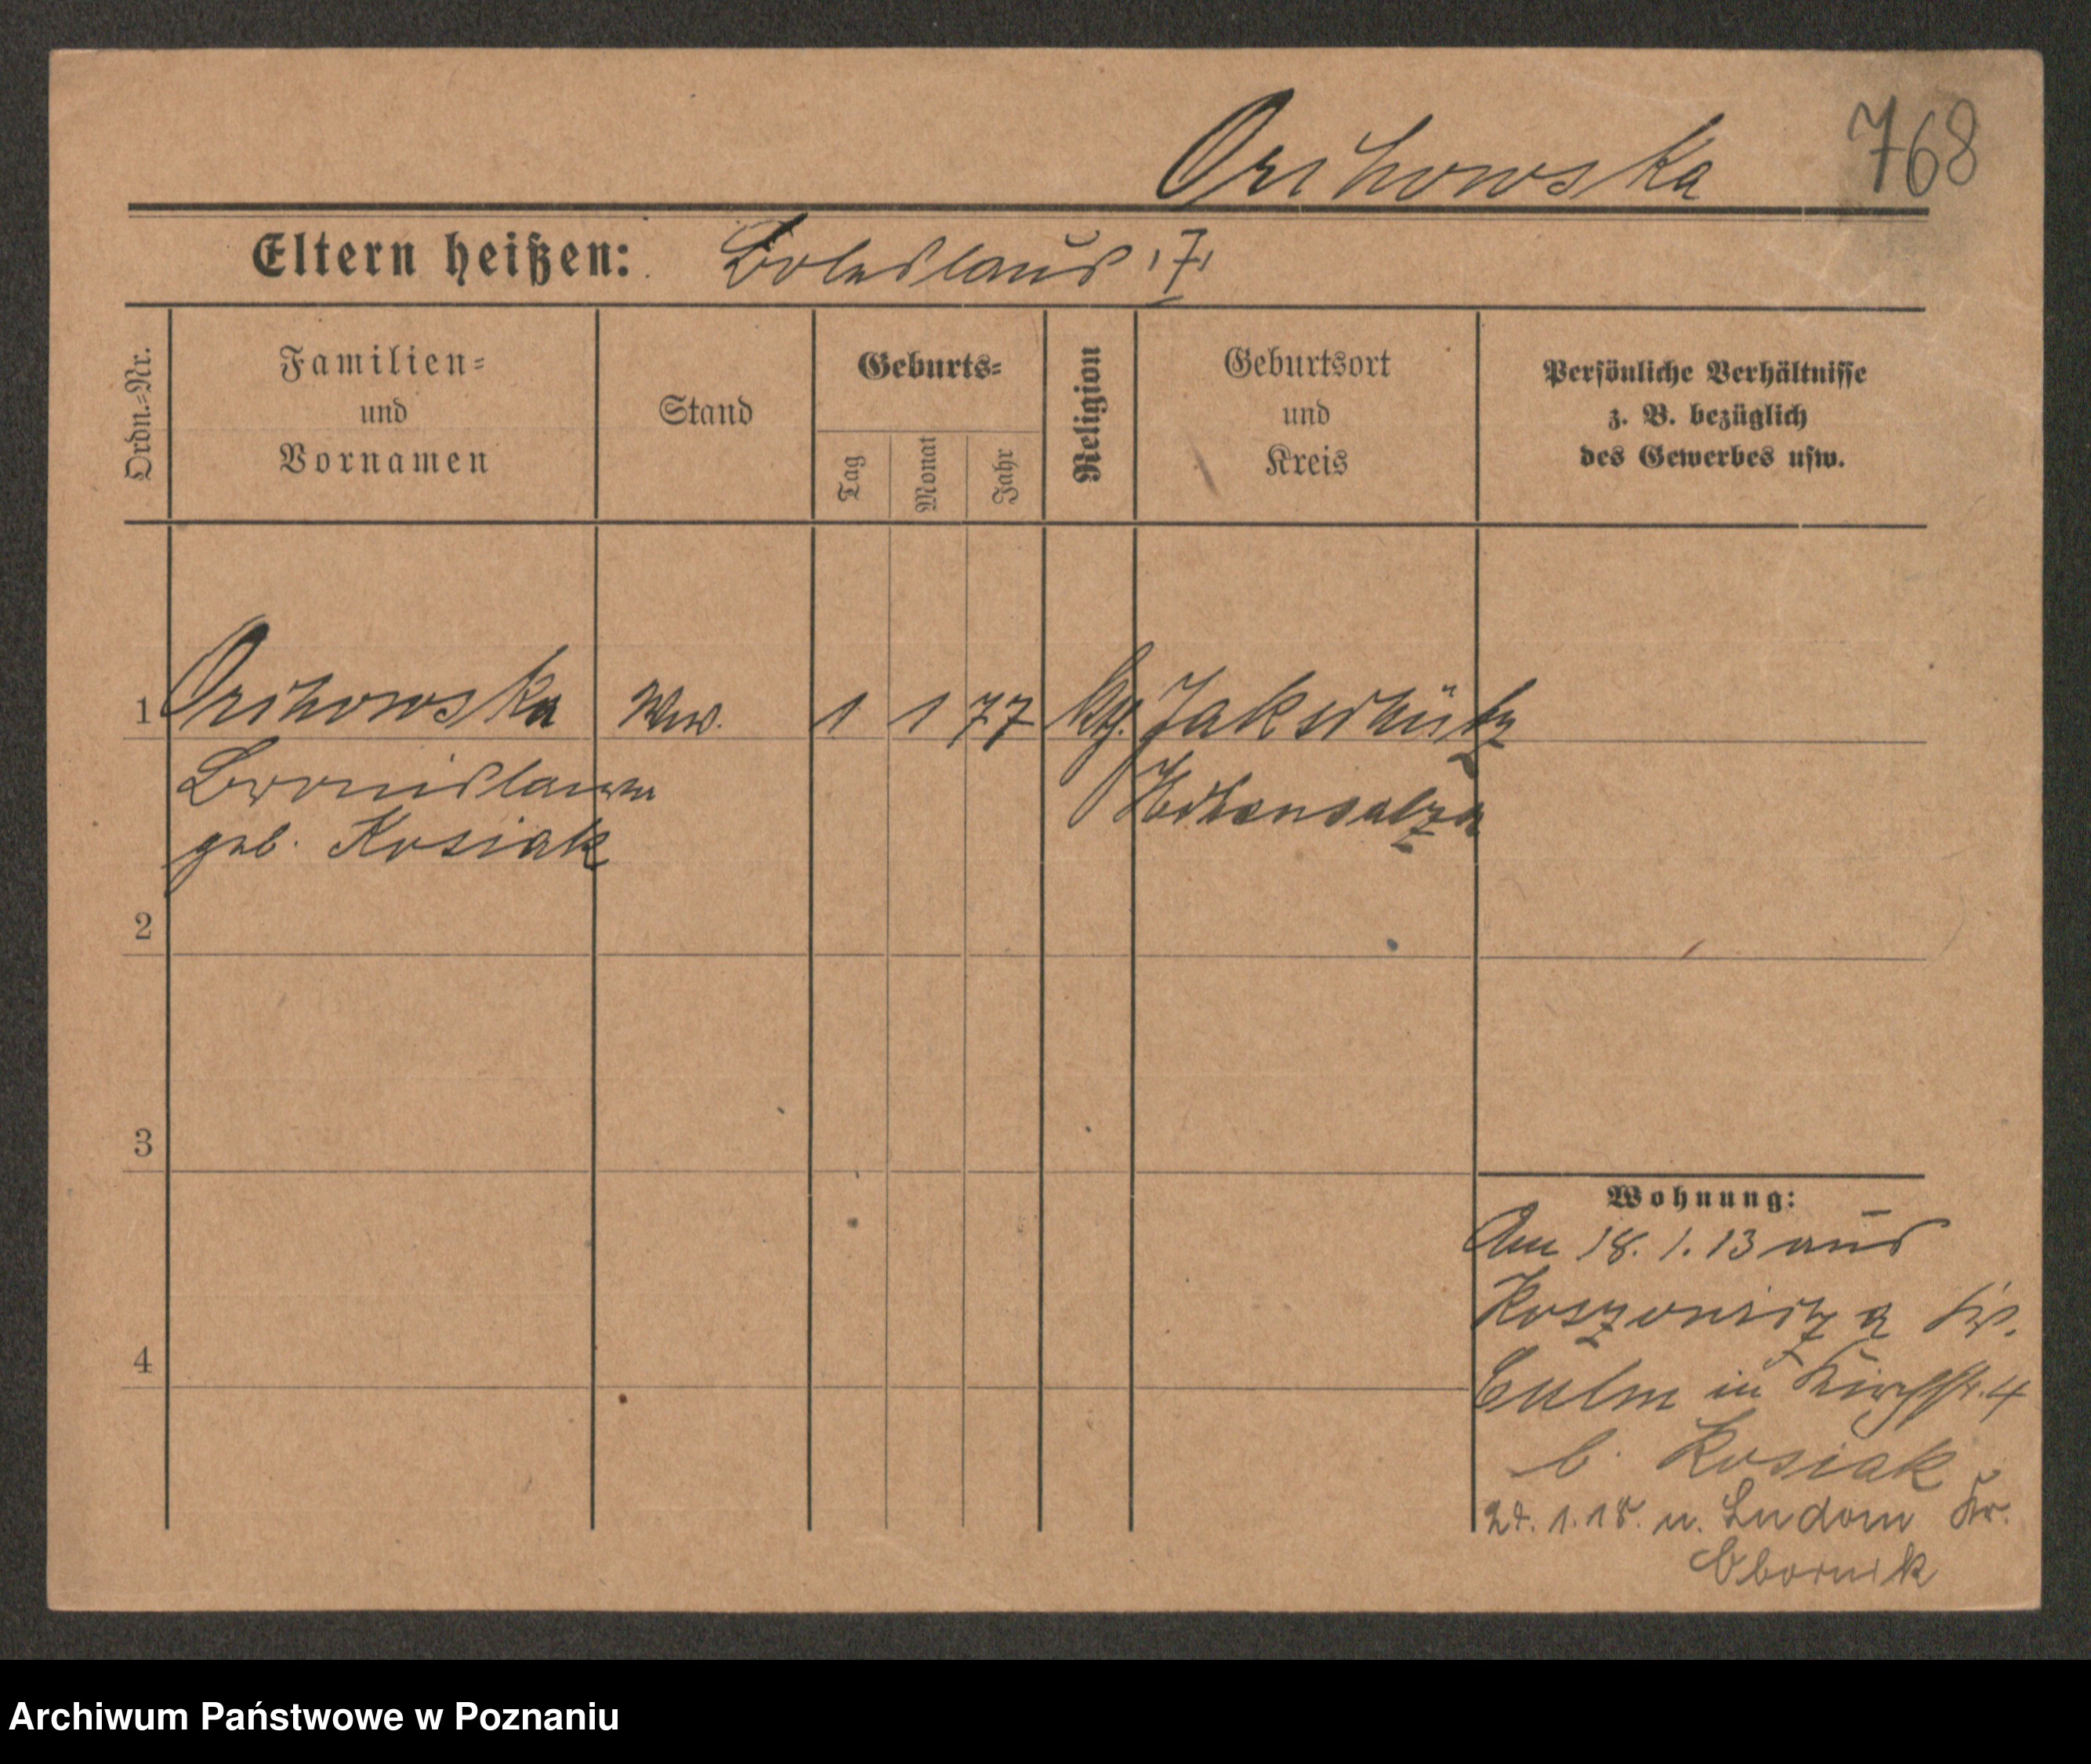 Orchowska 768
Eltern heißen: Boleslaus
Ordn.=Nr.
Familien=
und
Vornamen
Stand
Geburts=
Tag
Monat
Jahr
Religion
Geburtsort
und
Kreis
Persönliche Verhältnisse
z. B. bezüglich
des Gewerbes usw.
1 Orchowska Ww. 1 1 77
Bronislawa Hohensalza
geb. Kosiak
2
3
4
Wohnung:
Am 18. 1. 13 aus
Kr.
Culm in Kirchstr. 4
b. Kosiak
1. 18. n. Ludom Kr.
Obornik
Archiwum Państwowe w Poznaniu